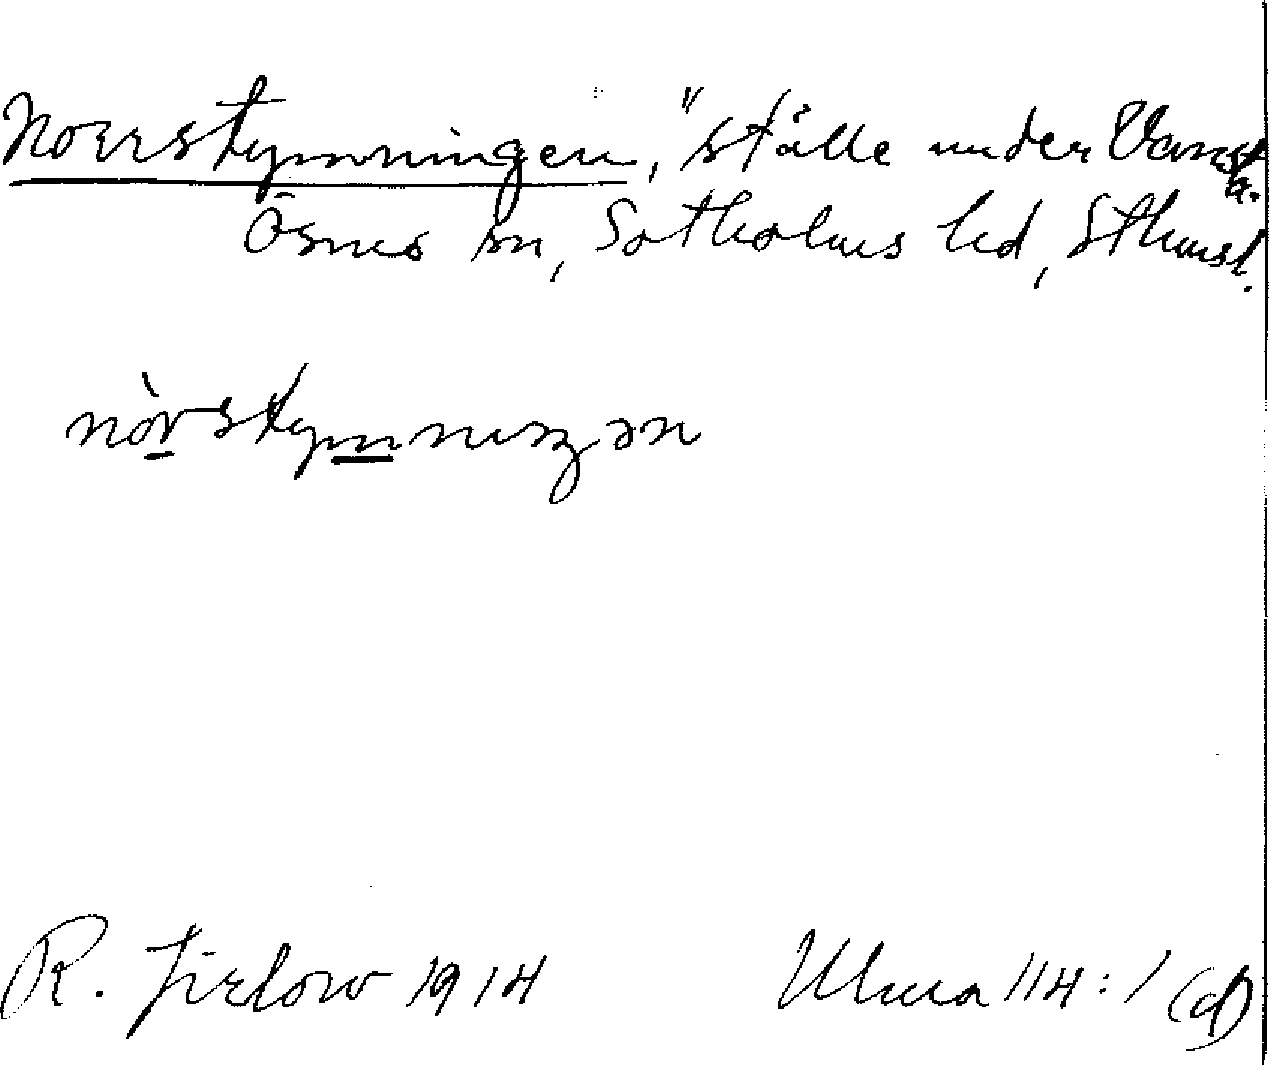 Norrstymningen, "ställe under Vansta.
Ösmo sn, Sotholms hd, Sthmsl.
nòrstymnıŋən
R. Jirlow 1914 Ulma 114:1 (d)